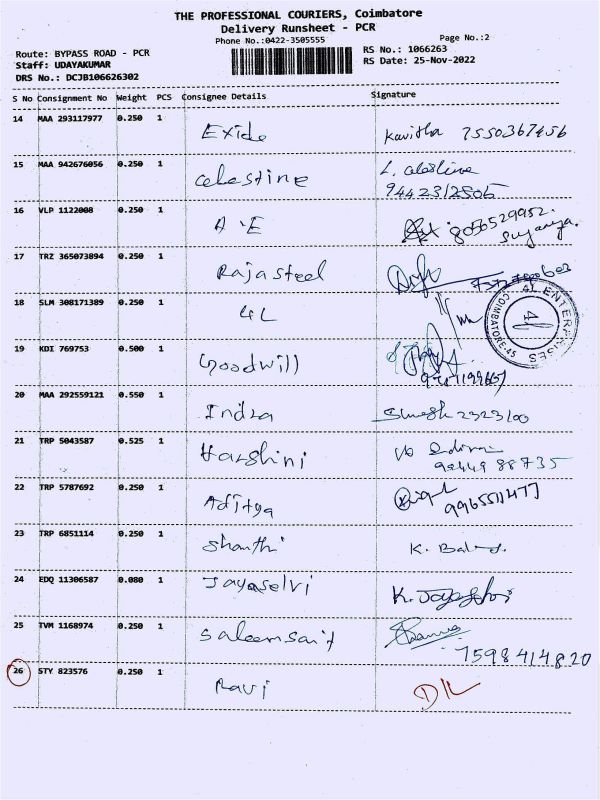 THE PROFESSIONAL COURIERS, Coimbatore
Delivery Runsheet - PCR
Phone No.:0422-3505555
Page No.:2
Route: BYPASS ROAD - PCR
RS No.: 1066263
Staff: UDAYAKUMAR
RS Date: 25-Nov-2022
DRS No.: DCJB106626302
S No Consignment No Weight PCS Consignee Details Signature
14 MAA 293117977 0.250 1 Exide Kavitha 7550367456
15 MAA 942676056 0.250 1 Celestine L. Celestine
9442312805
16 VLP 1122008 0.250 1 A.E 8056529952.
Suganya.
17 TRZ 365073894 0.250 1 Rajasteel
18 SLM 308171389 0.250 1 4L
4L ENTERPRISES
COIMBATORE-45
4L
19 KDI 769753 0.500 1 Goodwill
20 MAA 292559121 0.550 1 Indra Suresh 2323100
21 TRP 5043587 0.525 1 Harshini
9244988735
22 TRP 5787692 0.250 1 Aditya
9965511477
23 TRP 6851114 0.250 1 Shanthi K.
24 EDQ 11306587 0.080 1 Jayaselvi K.
25 TVM 1168974 0.250 1 Saleemsait
7598414820
26 STY 823576 0.250 1 Ravi D/L